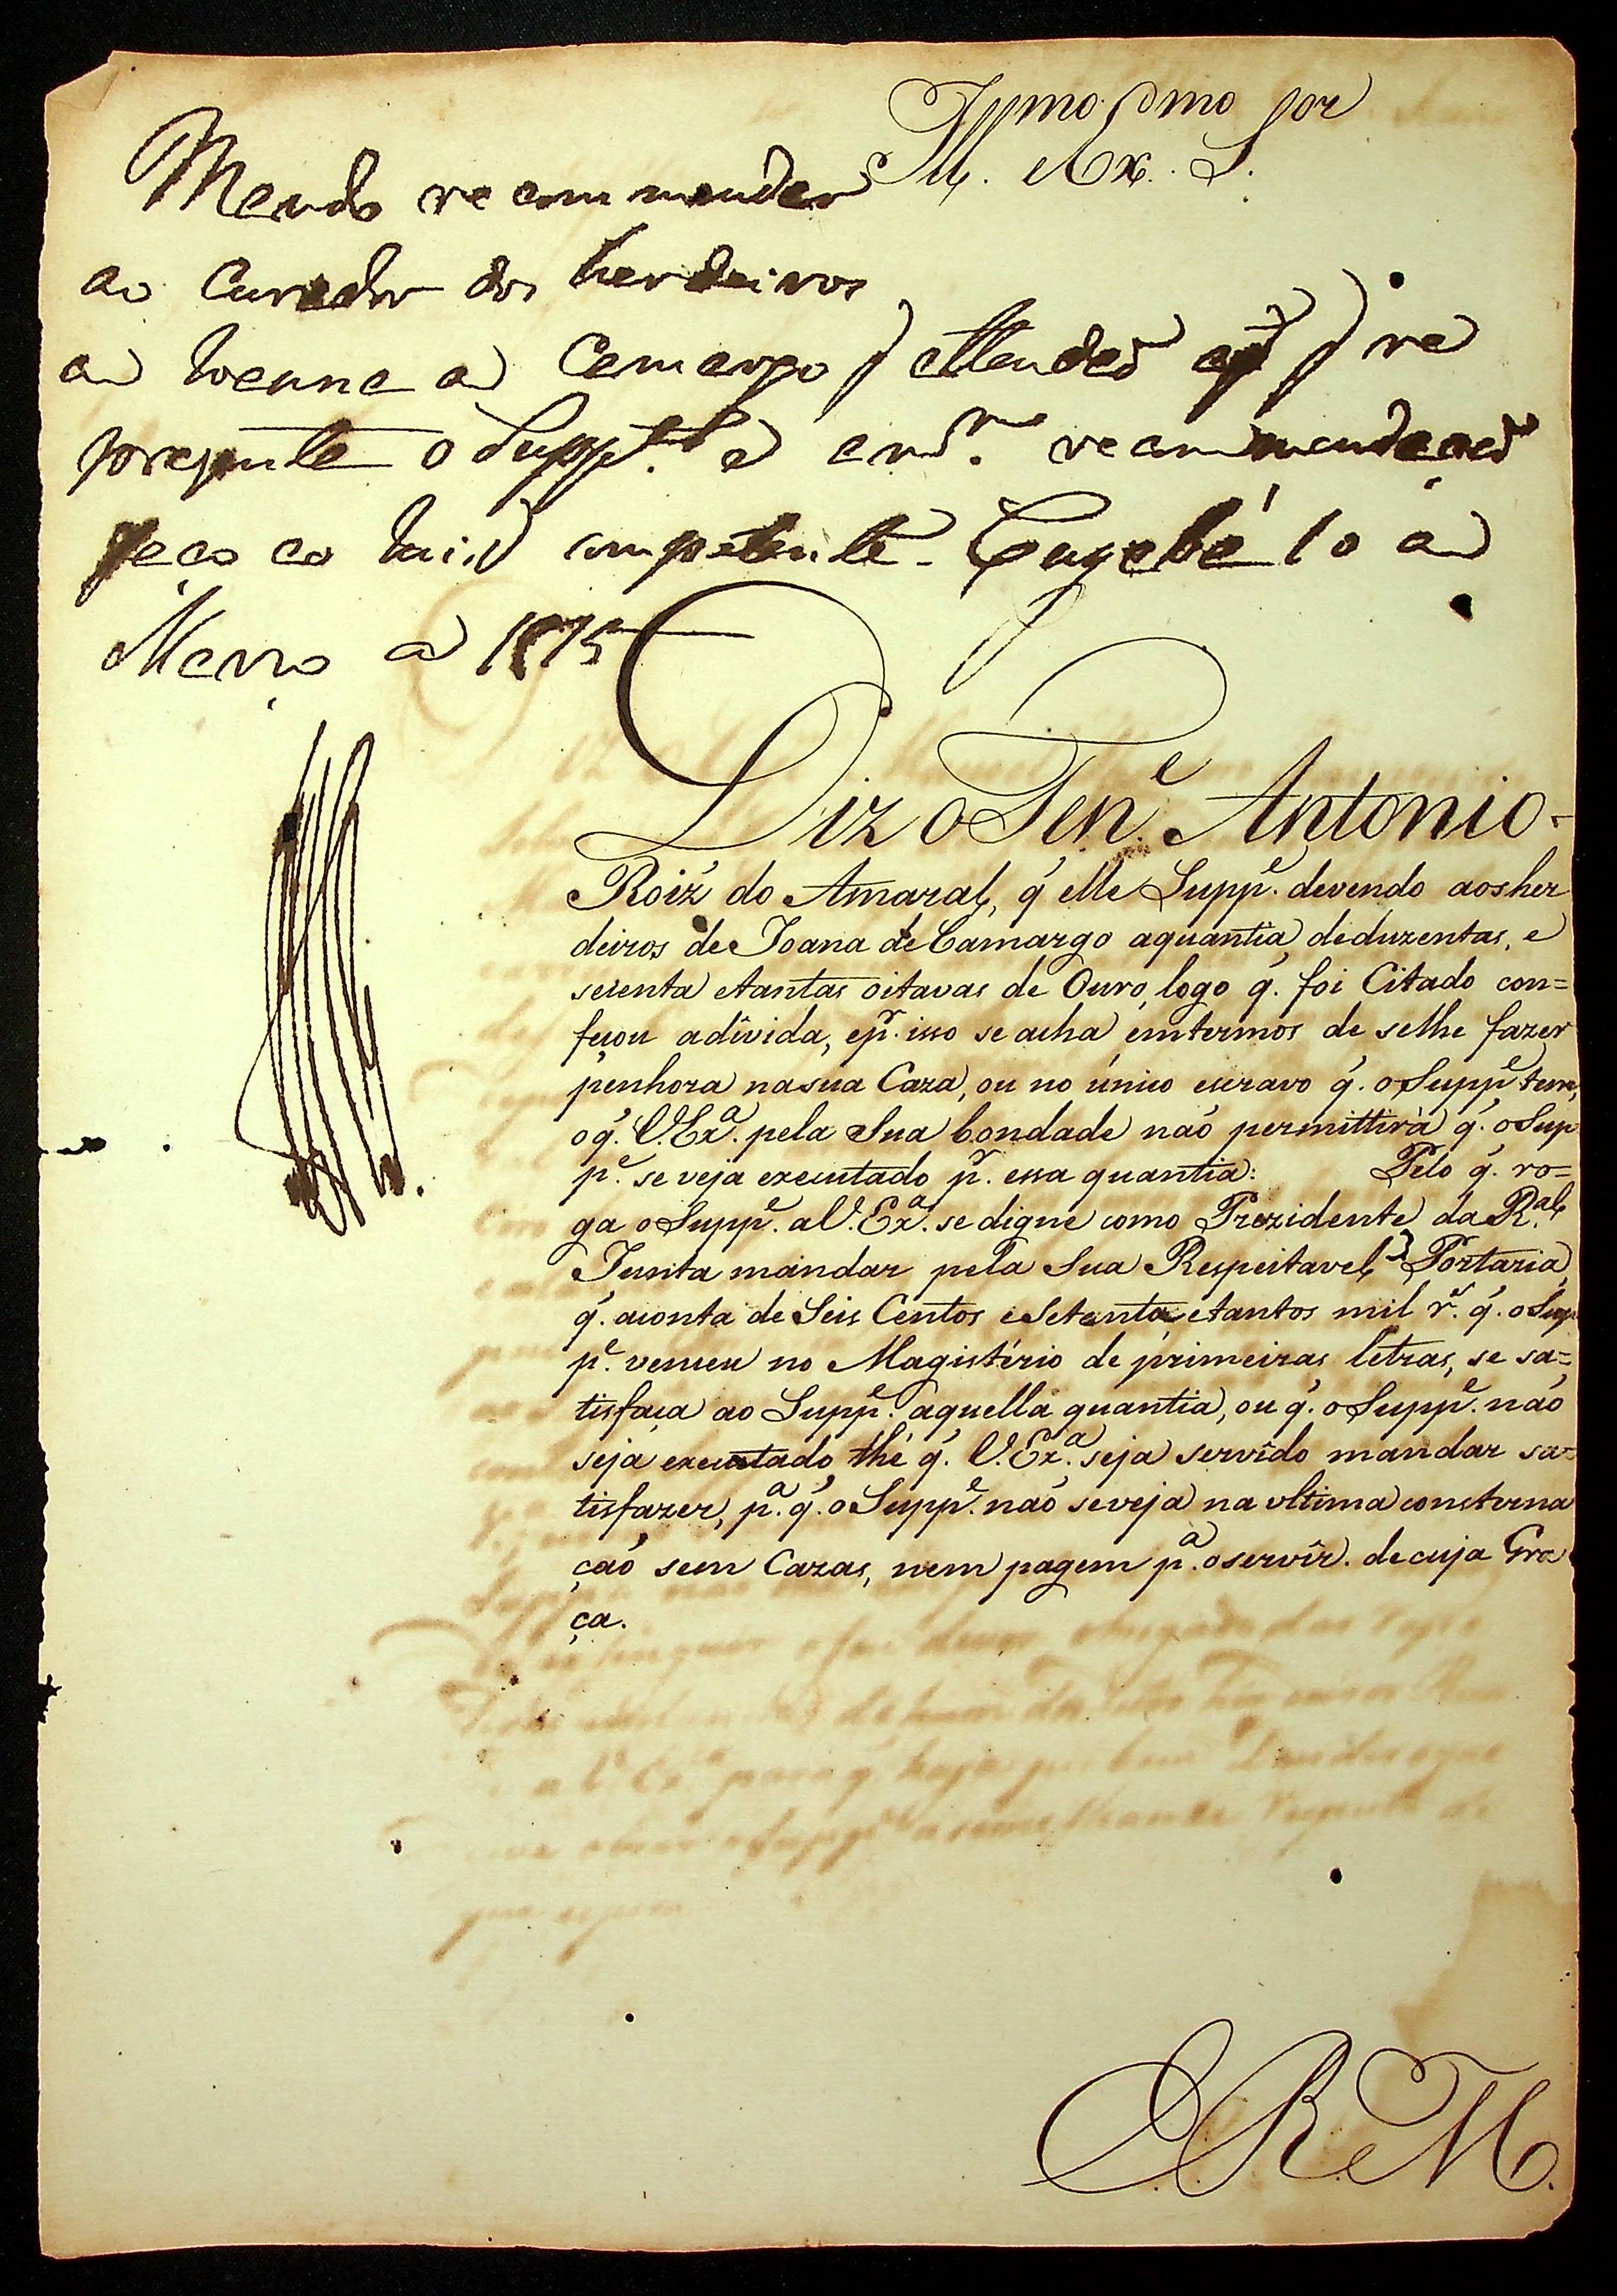 Illmo. Exmo. Sor.
Mando recommendar
ao Curador dos herdeiros
de Joanna de Camargo attenda ao q re
prezenta o Supp.te e esta recommendação
faço ao Juiz competente. Cuyabá 10 de
Março de 1815
Diz o Ten.e Antonio
Roiz do Amaral, q elle Supp.e devendo aos her
deiros de Joana de Camargo aquantia de duzentas, e
secenta etantas oitavas de Ouro, logo q. foi Citado con=
feçou adívida, ep.r isso se acha emtermos de selhe fazer
penhora nasua Caza, ou no único escravo q. o Supp.e tem,
oq. V.Ex.a pela Sua bondade naó permittirà q. o Sup
p.e se veja executado p.r essa quantia: Pelo q. ro=
ga o Supp.e a V.Ex.a se digne como Prezidente da R.al
Junta mandar pela Sua Respeitavel Portaria,
q. aconta de Seis Centos e Setenta etantos mil r.s q. o Sup
p.e venceu no Magistério de primeiras letras, se sa=
tisfaça ao Supp.e aquella quantia, ou q. o Supp.e naó
seja executado thé q. V.Ex.a seja servído mandar sa=
tisfazer, p.a q. o Supp.e naó seveja na vltima consterna
çaó sem Cazas, nem pagem p.a oservîr. de cuja Gra
ça.
E R M.